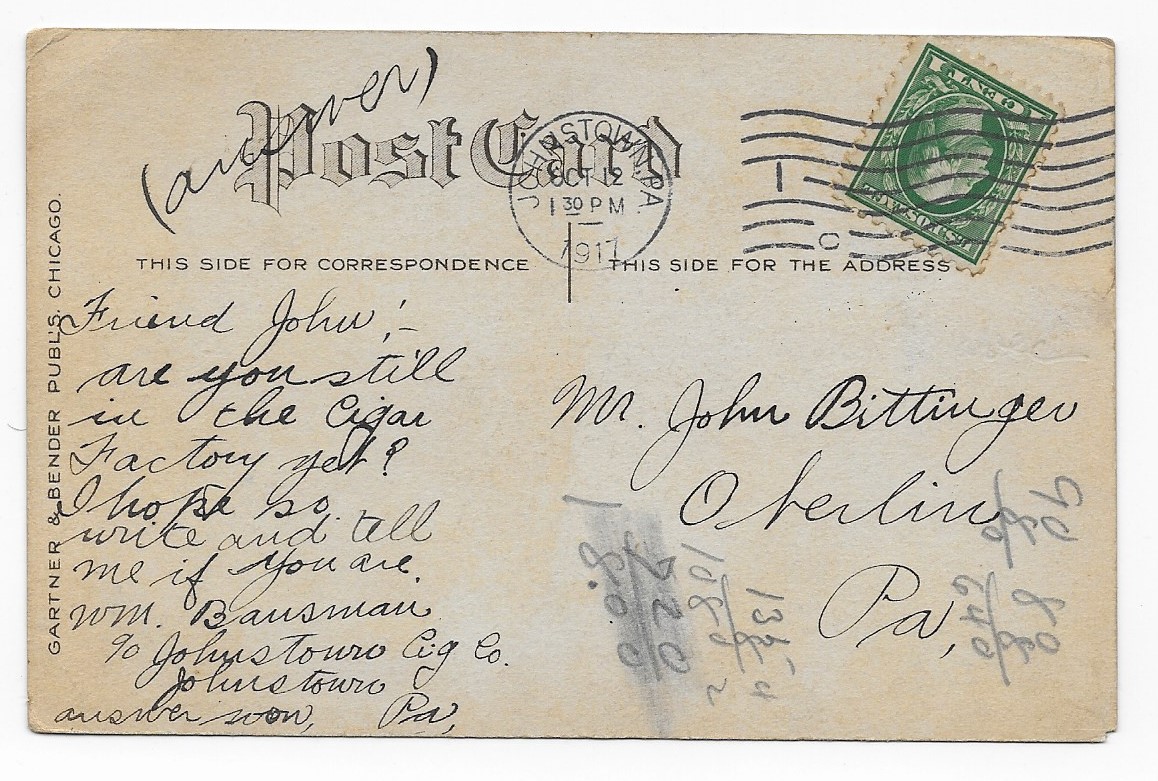 (answer)
Post Card
JOHNSTOWN, PA.
OCT 12
1 30 PM
1911
THIS SIDE FOR CORRESPONDENCE
THIS SIDE FOR THE ADDRESS
GARTNER & BENDER PUBL'S. CHICAGO.
Friend John;-
are you still
in the Cigar
Factory yet?
I hope so.
write and tell
me if you are.
Wm. Bausman
c/o Johnstown Cig Co.
Johnstown
answer soon, Pa,
Mr. John Bittinger
Oberlin
Pa,